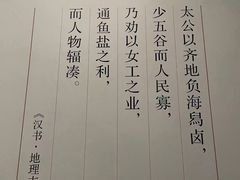 太公以齐地负海舄卤，
少五谷而人民寡，
乃劝以女工之业，
通鱼盐之利，
而人物辐凑。
《汉书·地理